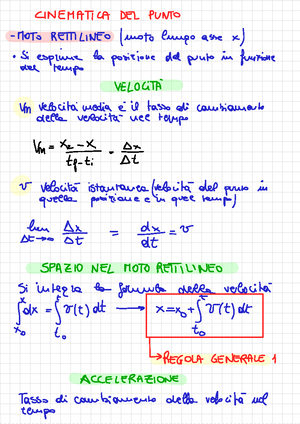 CINEMATICA DEL PUNTO
- MOTO RETTILINEO (moto lungo asse x)
• Si esprime la posizione del punto in funzione
del tempo
VELOCITÀ
Vm velocità media è il tasso di cambiamento
della velocità nel tempo
Vm = x₂ - x / tf - ti = Δx / Δt
v velocità istantanea (velocità del punto in
quella posizione e in quel tempo)
lim Δt→0 Δx / Δt = dx / dt = v
SPAZIO NEL MOTO RETTILINEO
Si integra la formula della velocità
∫x₀^x dx = ∫t₀^t v(t) dt → x = x₀ + ∫t₀^t v(t) dt
→ REGOLA GENERALE 1
ACCELERAZIONE
Tasso di cambiamento della velocità nel
tempo